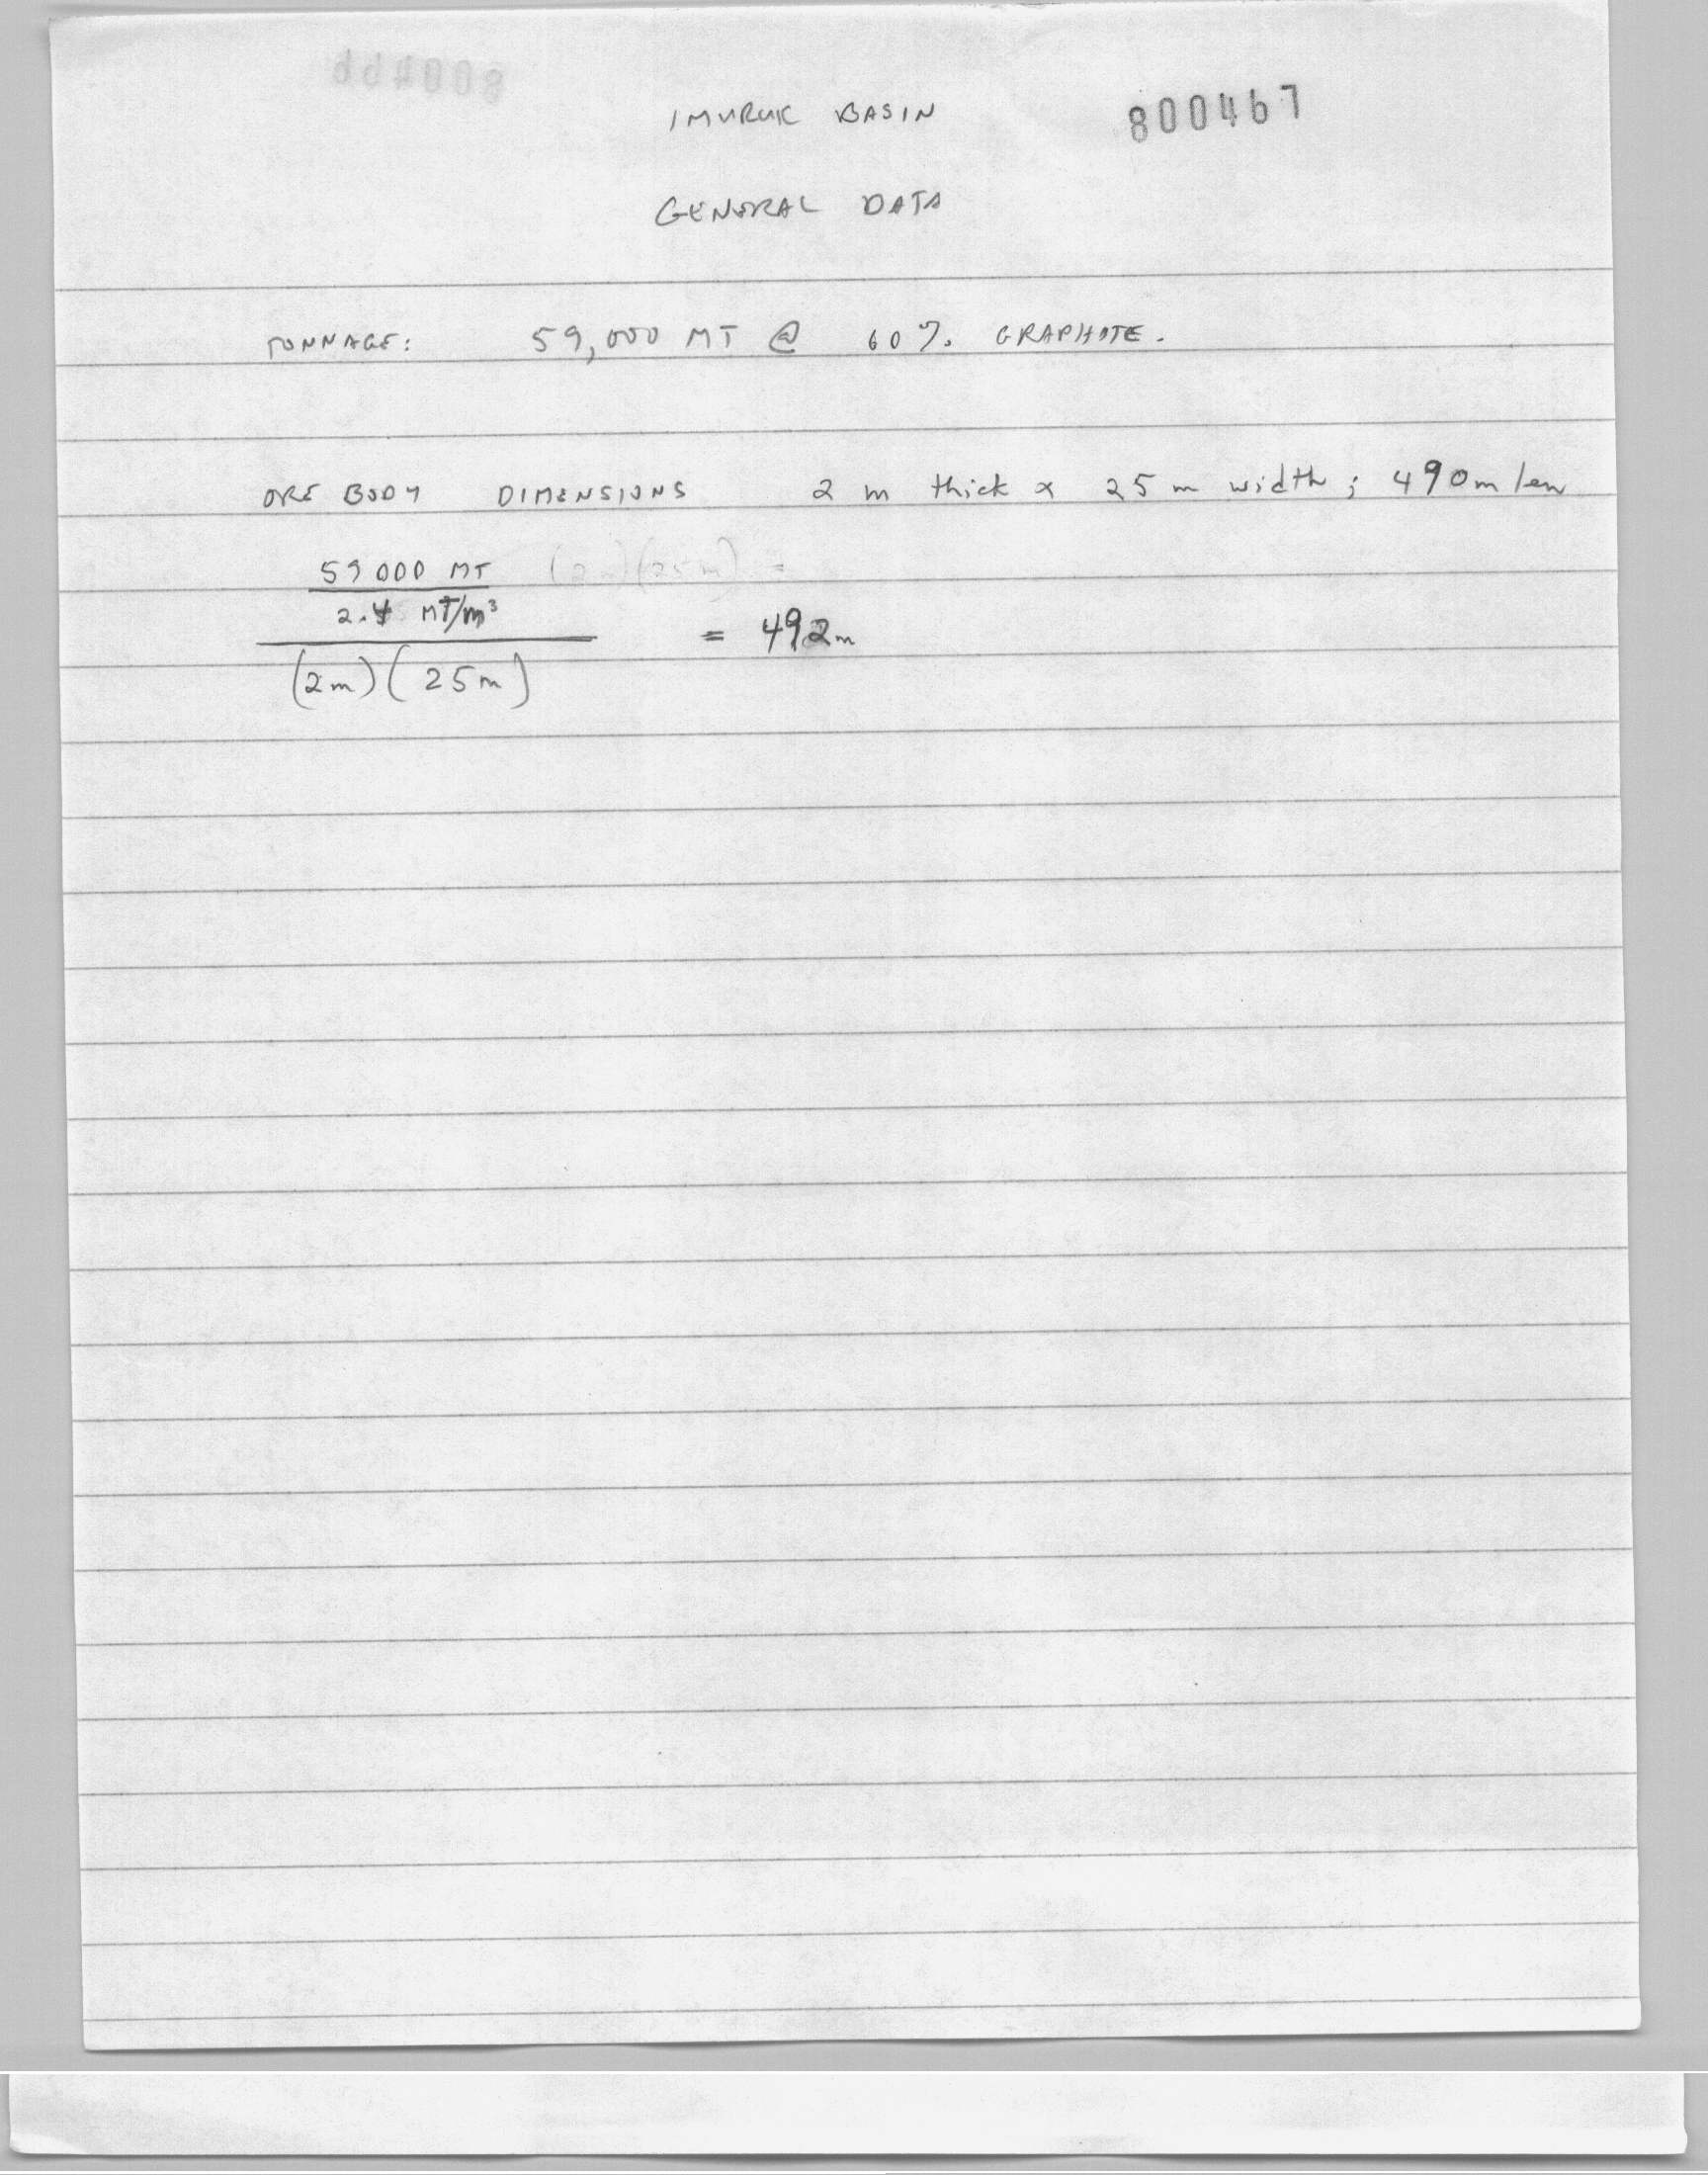 800466
IMURUK BASIN 800467
GENERAL DATA
TONNAGE: 59,000 MT @ 60% GRAPHITE.
ORE BODY DIMENSIONS 2 m thick x 25 m width; 490m len
59000 MT (2m)(25m) =
2.4 MT/m³
= 492m
(2m)(25m)